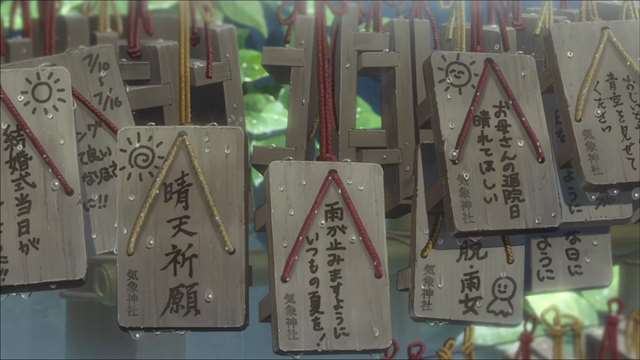 結婚式当日が
に!!
7/10
7/16
氣象神社
晴天祈願
氣象神社
雨が止みますように
いつもの夏を!
氣象神社
お母さんの退院日
晴れてほしい
氣象神社
脱雨女
氣象神社
青空を見せて
ください
氣象神社
ように
な日に
ように